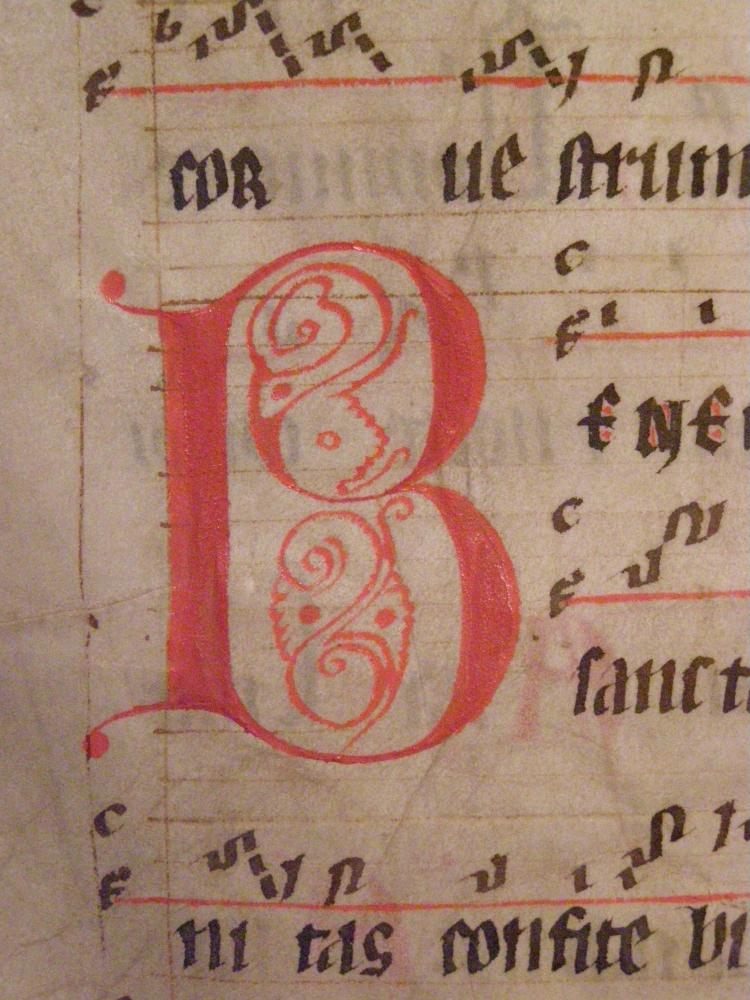 cor ue strum
BENE
sanct
ni tas confite bi